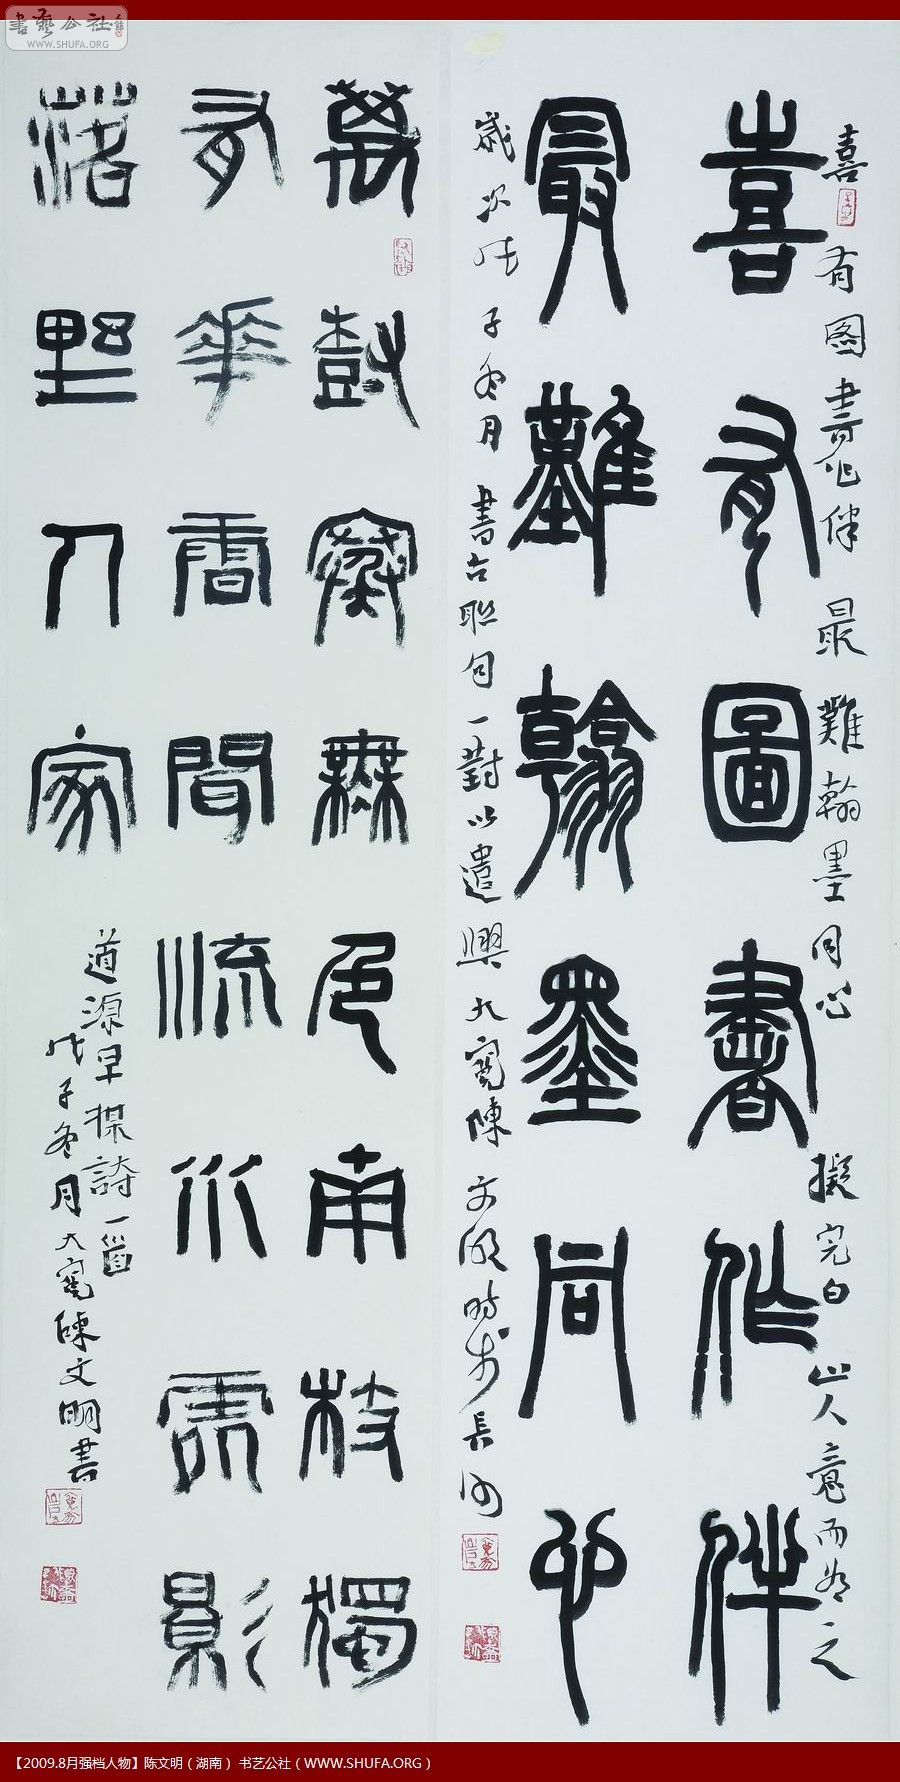 書藝公社
WWW.SHUFA.ORG
喜有圖書作伴
最難翰墨同心
喜有圖書作伴 最難翰墨同心 擬完白山人意而為之
歲次戊子冬月書古聯句一對以遣興大寬陳文明時於長沙
萬尌寒無色南枝獨
有華香聞流水處影
落野人家
道源早楳詩一首
戊子冬月大寬陳文明書
【2009.8月强档人物】陈文明（湖南） 书艺公社（WWW.SHUFA.ORG）